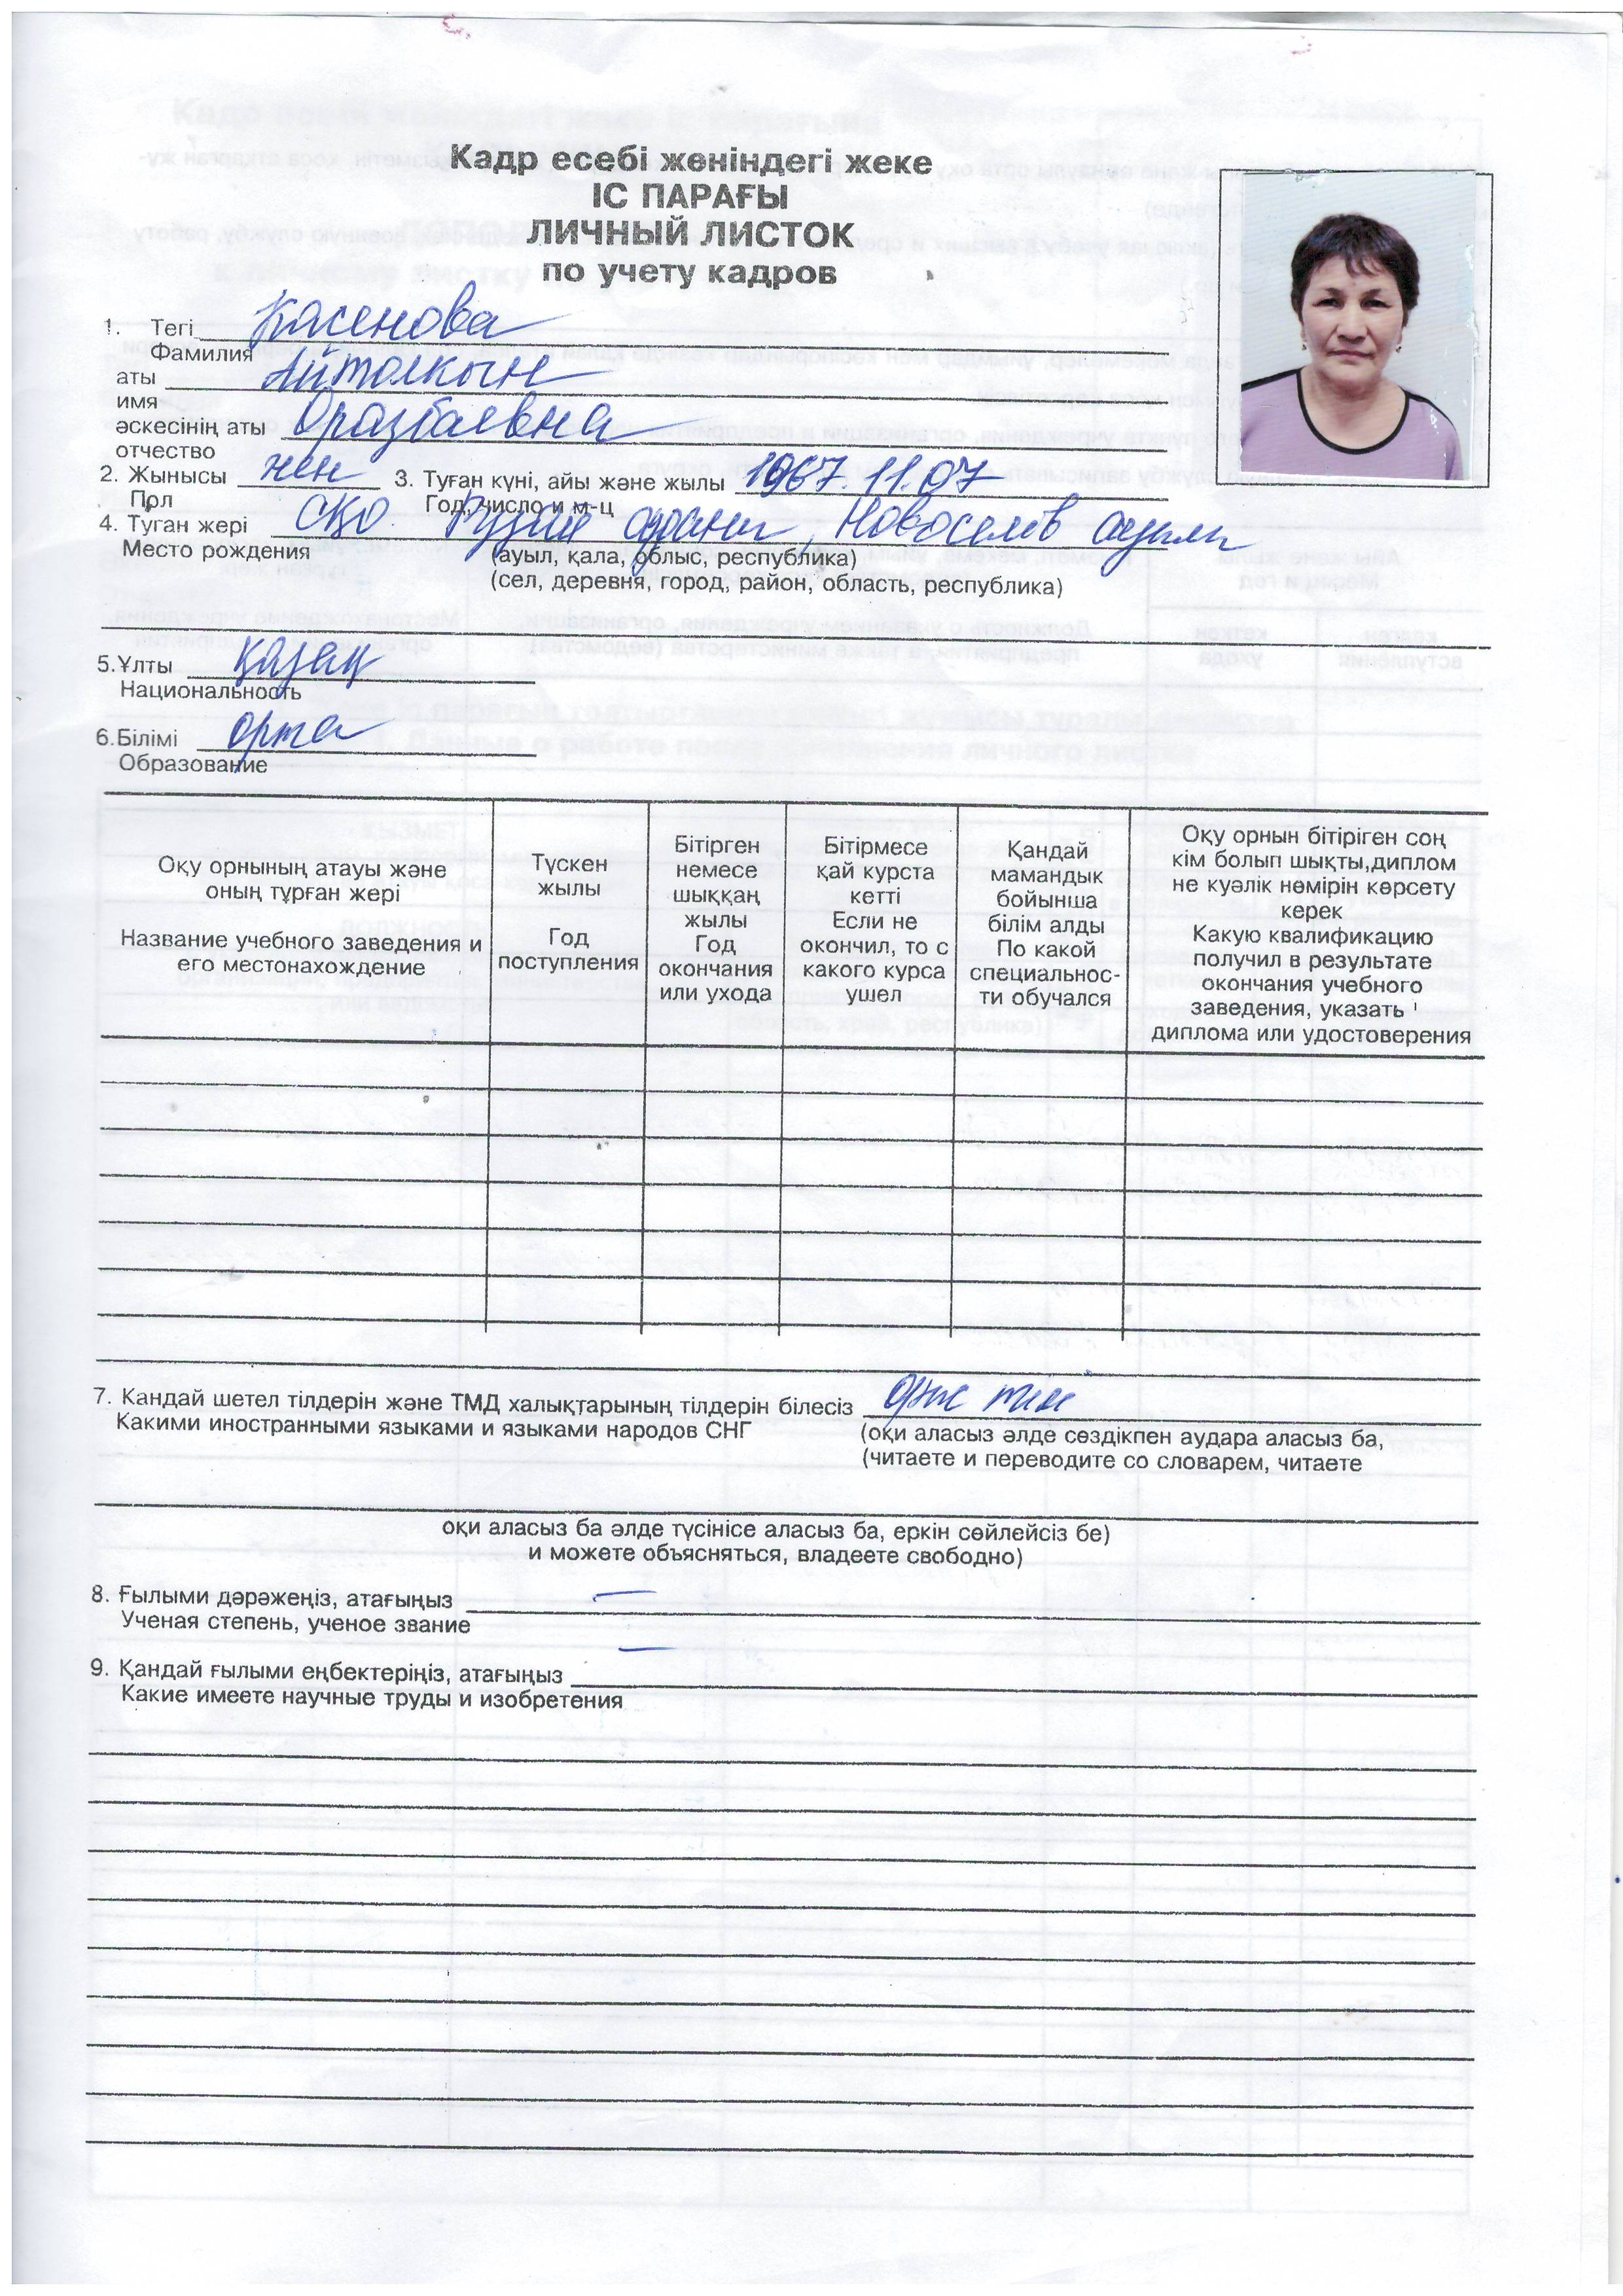 Кадр есебі жөніндегі жеке
ІС ПАРАҒЫ
ЛИЧНЫЙ ЛИСТОК
по учету кадров
1. Тегі Касенова
Фамилия
аты Айтолкын
имя
әскесінің аты Оразбаевна
отчество
2. Жынысы жен 3. Туған күні, айы және жылы 1967.11.07
Пол Год, число и м-ц
4. Туган жері СҚО ауданы, Новоселов ауылы
Место рождения (ауыл, қала, облыс, республика)
(сел, деревня, город, район, область, республика)
5.Ұлты қазақ
Национальность
6.Білімі орта
Образование
Оқу орнының атауы және
оның тұрған жері
Название учебного заведения и
его местонахождение
Түскен
жылы
Год
поступления
Бітірген
немесе
шыққаң
жылы
Год
окончания
или ухода
Бітірмесе
қай курста
кетті
Если не
окончил, то с
какого курса
ушел
Қандай
мамандык
бойынша
білім алды
По какой
специальнос-
ти обучался
Оқу орнын бітіріген соң
кім болып шықты,диплом
не куәлік нөмірін көрсету
керек
Какую квалификацию
получил в результате
окончания учебного
заведения, указать
диплома или удостоверения
7. Кандай шетел тілдерін және ТМД халықтарының тілдерін білесіз орыс тілі
Какими иностранными языками и языками народов СНГ (оқи аласыз әлде сөздікпен аудара аласыз ба,
(читаете и переводите со словарем, читаете
оқи аласыз ба әлде түсінісе аласыз ба, еркін сөйлейсіз бе)
и можете объясняться, владеете свободно)
8. Ғылыми дәрәжеңіз, атағыңыз —
Ученая степень, ученое звание
9. Қандай ғылыми еңбектеріңіз, атағыңыз —
Какие имеете научные труды и изобретения